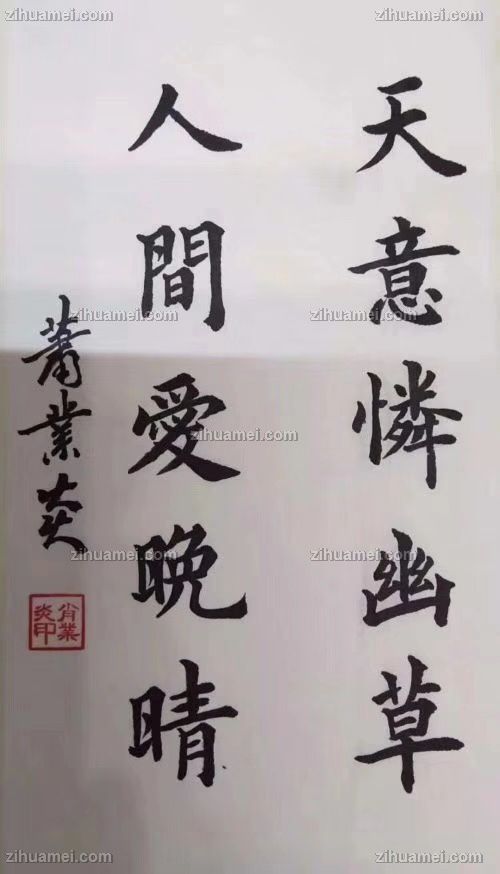 天意憐幽草
人間愛晚晴
蕭業炎
肖業炎印
zihuamei.com
zihuamei.com
zihuamei.com
zihuamei.com
zihuamei.com
zihuamei.com
zihuamei.com
zihuamei.com
zihuamei.com
zihuamei.com
zihuamei.com